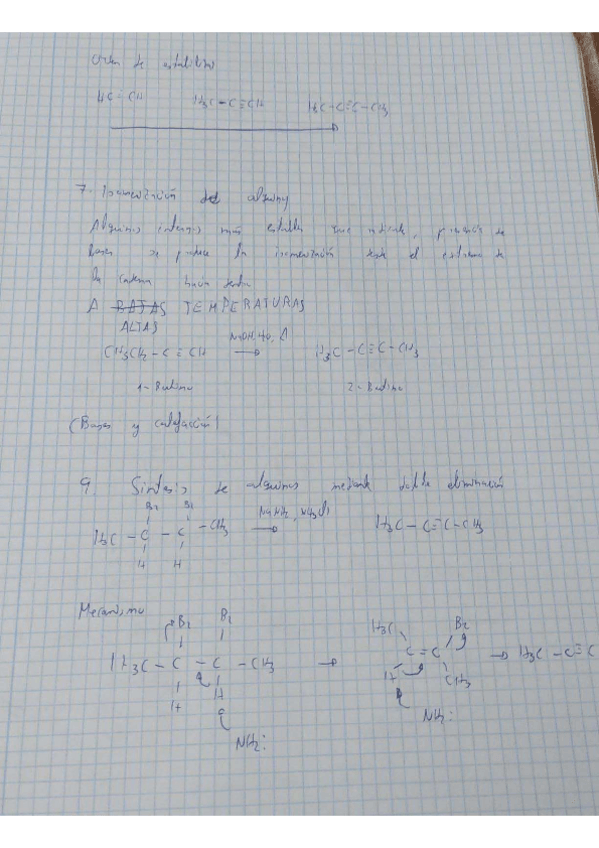 Orden de estabilidad
HC≡CH H3C-C≡CH H3C-C≡C-CH3
7. Isomerización de alquinos
Alquinos internos más estables que, presencia de
bases se produce la isomerización desde el extremo de
la cadena hacia dentro
A BAJAS TEMPERATURAS
ALTAS
CH3CH2-C≡CH NaOH, H2O, Δ H3C-C≡C-CH3
1-Butino 2-Butino
(Bases y calefacción)
9. Síntesis de alquinos mediante doble eliminación
Br Br
H3C-C-C-CH3 NaNH2, NH3(l) H3C-C≡C-CH3
H H
Mecanismo
Br Br H3C Br
H3C-C-C-CH3 C=C H3C-C≡C
H H H CH3
NH2: NH2: